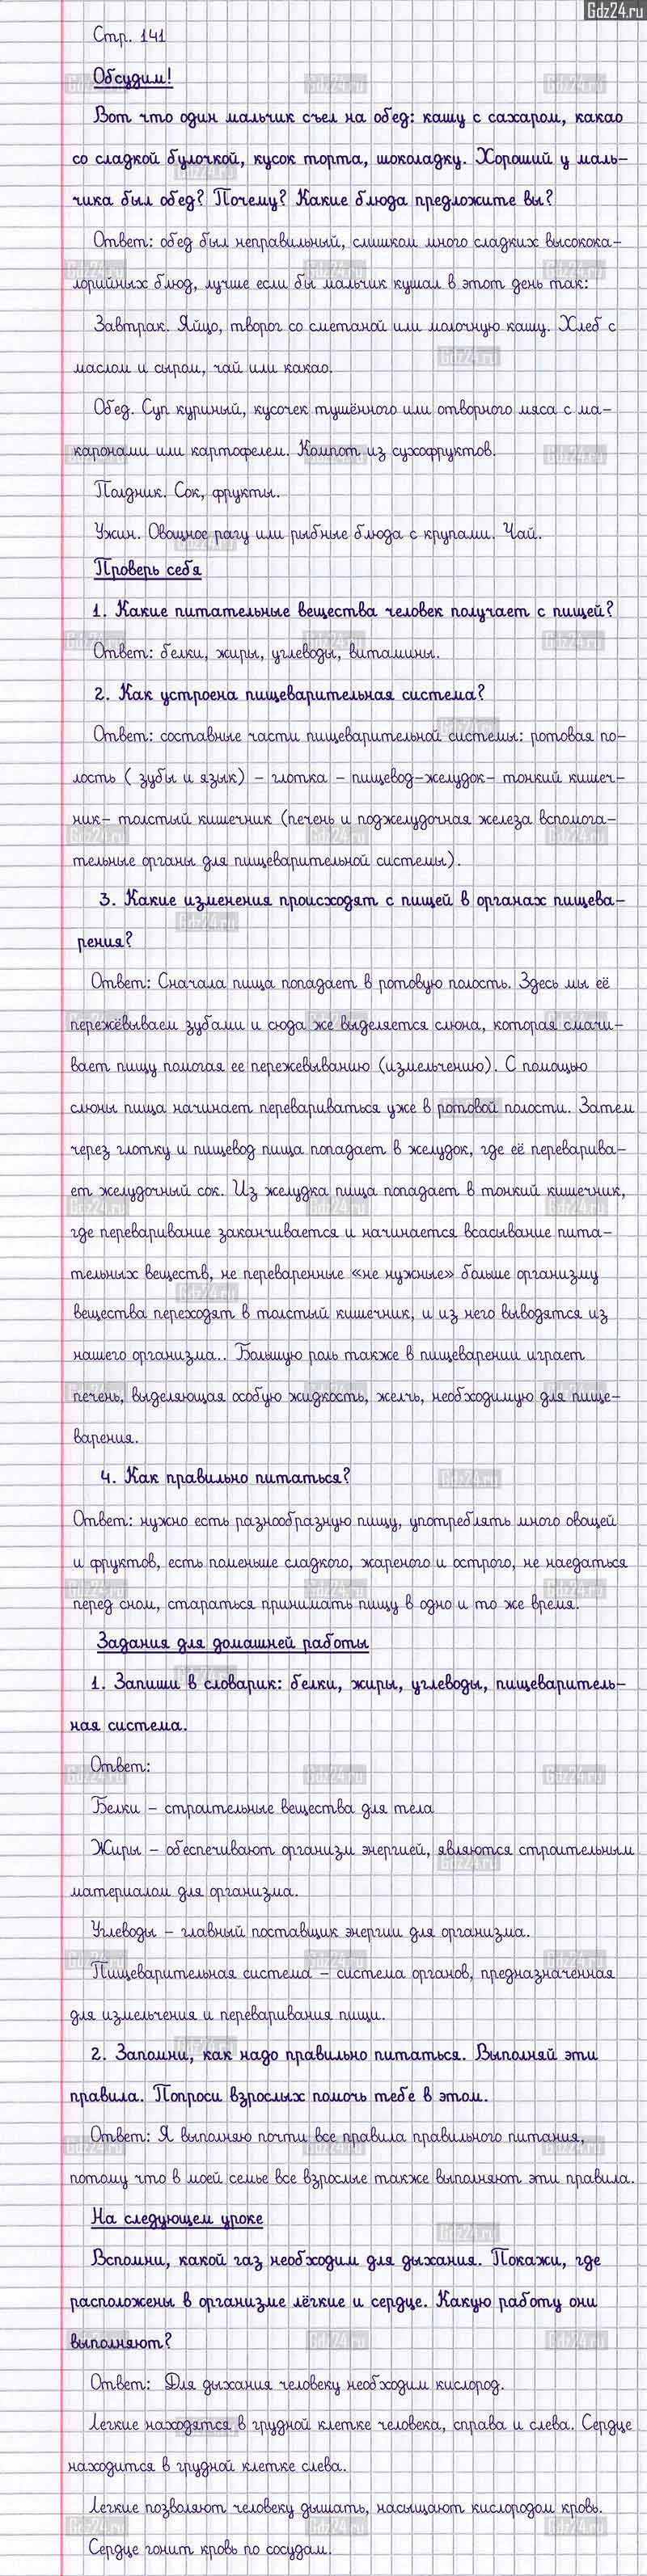 Gdz24.ru
Стр. 141
Обсудим!
Вот что один мальчик съел на обед: кашу с сахаром, какао
со сладкой булочкой, кусок торта, шоколадку. Хороший у маль-
чика был обед? Почему? Какие блюда предложите вы?
Ответ: обед был неправильный, слишком много сладких высокока-
лорийных блюд, лучше если бы мальчик кушал в этот день так:
Завтрак. Яйцо, творог со сметаной или молочную кашу. Хлеб с
маслом и сыром, чай или какао.
Обед. Суп куриный, кусочек тушённого или отворного мяса с ма-
каронами или картофелем. Компот из сухофруктов.
Полдник. Сок, фрукты.
Ужин. Овощное рагу или рыбные блюда с крупами. Чай.
Проверь себя
1. Какие питательные вещества человек получает с пищей?
Ответ: белки, жиры, углеводы, витамины.
2. Как устроена пищеварительная система?
Ответ: составные части пищеварительной системы: ротовая по-
лость ( зубы и язык) - глотка - пищевод-желудок- тонкий кишеч-
ник- толстый кишечник (печень и поджелудочная железа вспомога-
тельные органы для пищеварительной системы).
3. Какие изменения происходят с пищей в органах пищева-
рения?
Ответ: Сначала пища попадает в ротовую полость. Здесь мы её
пережёвываем зубами и сюда же выделяется слюна, которая смачи-
вает пищу помогая ее пережевыванию (измельчению). С помощью
слюны пища начинает перевариваться уже в ротовой полости. Затем
через глотку и пищевод пища попадает в желудок, где её переварива-
ет желудочный сок. Из желудка пища попадает в тонкий кишечник,
где переваривание заканчивается и начинается всасывание пита-
тельных веществ, не переваренные «не нужные» больше организму
вещества переходят в толстый кишечник, и из него выводятся из
нашего организма.. Большую роль также в пищеварении играет
печень, выделяющая особую жидкость, желчь, необходимую для пище-
варения.
4. Как правильно питаться?
Ответ: нужно есть разнообразную пищу, употреблять много овощей
и фруктов, есть поменьше сладкого, жареного и острого, не наедаться
перед сном, стараться принимать пищу в одно и то же время.
Задания для домашней работы
1. Запиши в словарик: белки, жиры, углеводы, пищеваритель-
ная система.
Ответ:
Белки - строительные вещества для тела
Жиры - обеспечивают организм энергией, являются строительным
материалом для организма.
Углеводы - главный поставщик энергии для организма.
Пищеварительная система - система органов, предназначенная
для измельчения и переваривания пищи.
2. Запомни, как надо правильно питаться. Выполняй эти
правила. Попроси взрослых помочь тебе в этом.
Ответ: Я выполняю почти все правила правильного питания,
потому что в моей семье все взрослые также выполняют эти правила.
На следующем уроке
Вспомни, какой газ необходим для дыхания. Покажи, где
расположены в организме лёгкие и сердце. Какую работу они
выполняют?
Ответ: Для дыхания человеку необходим кислород.
Легкие находятся в грудной клетке человека, справа и слева. Сердце
находится в грудной клетке слева.
Легкие позволяют человеку дышать, насыщают кислородом кровь.
Сердце гонит кровь по сосудам.